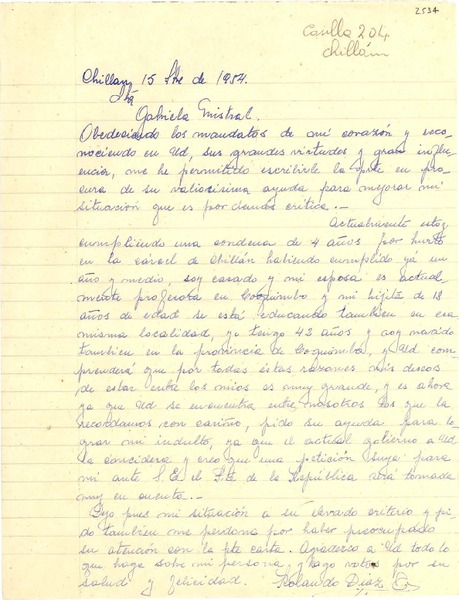 2534
Casilla 204
Chillán
Chillan, 15 Sbre de 1954.
Sta
Gabriela Mistral.
Obedeciendo los mandatos de mi corazón y reco-
nociendo en Ud, sus grandes virtudes y gran influ-
encia, me he permitido escribirle la pste en pro-
cura de su valiocisima ayuda para mejorar mi
situación que es por demas critica.-
Actualmente estoy
cumpliendo una condena de 4 años por hurto
en la cárcel de Chillán habiendo cumplido yá un
año y medio, soy casado y mi esposa es actual
mente profesora en Coquimbo y mi hijita de 18
años de edad se está educando tambien en esa
misma localidad, yo tengo 42 años y soy nacido
tambien en la provincia de Coquimbo, y Ud com-
prenderá que por todas estas razones mis deseos
de estar entre los mios es muy grande, y es ahora
ya que Ud se encuentra entre nosotros los que la
recordamos con cariño, pido su ayuda para lo-
grar mi indulto, ya que el actual gobierno a Ud
la concidera y creo que una petición suya para
mi ante S.E. el Pte de la República será tomada
muy en cuenta.-
Dejo pues mi situación a su elevado criterio y pi-
do tambien me perdona por haber preocupado
su atención con la pte carta. Agradesco a Ud todo lo
que haga sobre mi persona, y hago votos por su
salud y felicidad. Rolando Diaz